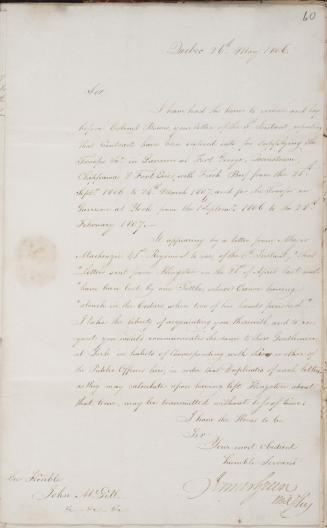 60
Quebec 26th May 1806.
Sir
I have had the honor to receive and lay
before Colonel Bowes your letter of the 5th Instant reporting
that Contracts have been entered into for supplying the
Troops &c. in Garrison at Fort George, Queenstown,
Chippawa & Fort Erie, with Fresh Beef from the 25th
Septr. 1806 to 24th March 1807, and for the Troops in
Garrison at York from the 1st Septemr. 1806 to the 28th
February 1807.
It appearing by a letter from Major
Mackenzie 41st Regiment to me of the Instant, "that
"Letters sent from Kingston on the 28th of April last must
"have been lost by one Battle, whose Canoe having
"struck in the when two of his hands perished"
I take the liberty of acquainting you therewith, and to re-
quest you would communicate the same to those Gentlemen
at York in habits of Corresponding with this or other of
the Public Offices here, in order that Duplicates of such letters
as they may calculate upon having left Kingston about
that time, may be transmitted without loss of time.
I have the Honor to be
Sir
Your most obedient
humble Servant
James Green
Mil. Secy
The Honble
John McGill
&c. &c. &c.